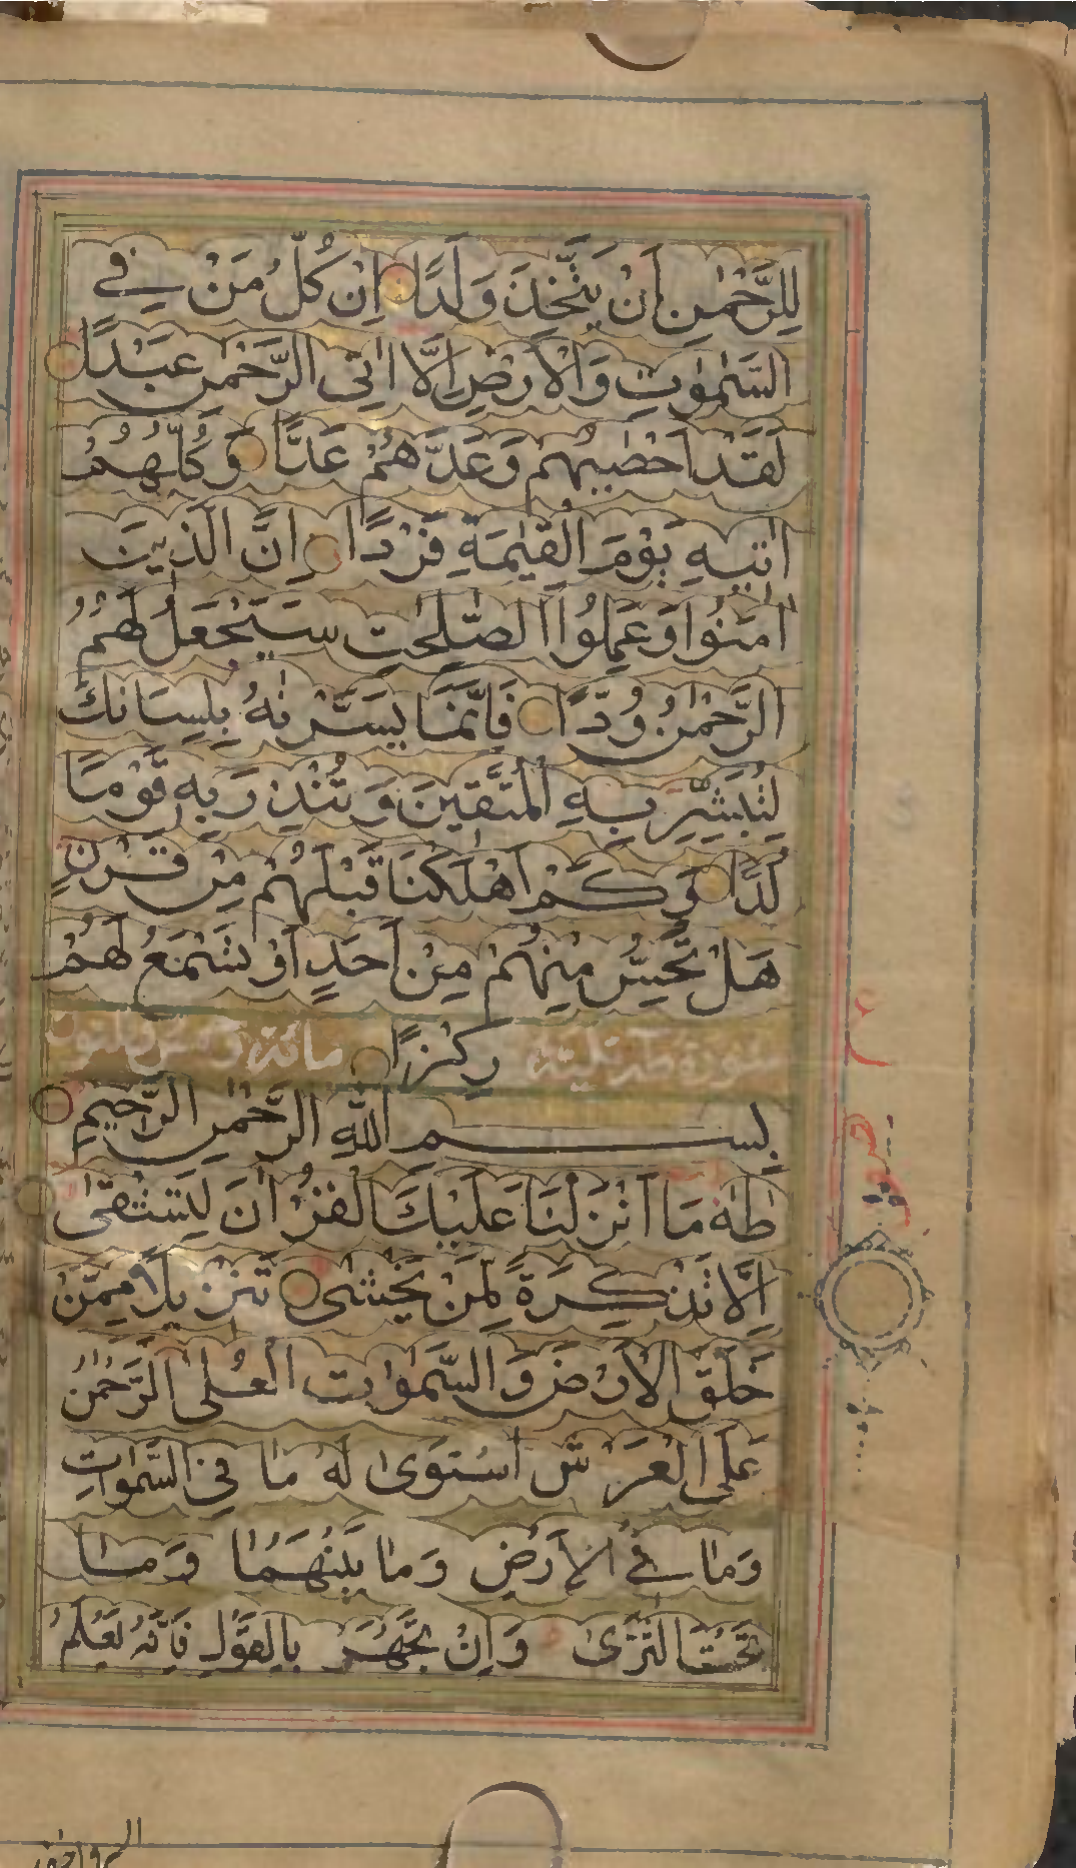 لِلرَّحْمٰنِ اَنْ يَتَّخِذَ وَلَدًا اِنْ كُلُّ مَنْ فِي
السَّمٰوٰتِ وَالْاَرْضِ اِلَّا اٰتِى الرَّحْمٰنِ عَبْدًا
لَقَدْ اَحْصٰيهُمْ وَعَدَّهُمْ عَدًّا وَكُلُّهُمْ
اٰتِيهِ يَوْمَ الْقِيٰمَةِ فَرْدًا اِنَّ الَّذِينَ
اٰمَنُوا وَعَمِلُوا الصّٰلِحٰتِ سَيَجْعَلُ لَهُمُ
الرَّحْمٰنُ وُدًّا فَاِنَّمَا يَسَّرْنٰهُ بِلِسَانِكَ
لِتُبَشِّرَ بِهِ الْمُتَّقِينَ وَتُنْذِرَ بِهِ قَوْمًا
لُدًّا وَكَمْ اَهْلَكْنَا قَبْلَهُمْ مِنْ قَرْنٍ
هَلْ تُحِسُّ مِنْهُمْ مِنْ اَحَدٍ اَوْ تَسْمَعُ لَهُمْ
سورة طه رِكْزًا مائة و
بِسْمِ اللّٰهِ الرَّحْمٰنِ الرَّحِيمِ
طٰهٰ مَا اَنْزَلْنَا عَلَيْكَ الْقُرْاٰنَ لِتَشْقٰى
اِلَّا تَذْكِرَةً لِمَنْ يَخْشٰى تَنْزِيلًا مِمَّنْ
خَلَقَ الْاَرْضَ وَالسَّمٰوٰتِ الْعُلٰى اَلرَّحْمٰنُ
عَلَى الْعَرْشِ اسْتَوٰى لَهُ مَا فِي السَّمٰوَاتِ
وَمَا فِي الْاَرْضِ وَمَا بَيْنَهُمَا وَمَا
تَحْتَ الثَّرٰى وَاِنْ تَجْهَرْ بِالْقَوْلِ فَاِنَّهُ يَعْلَمُ
السر واخفى